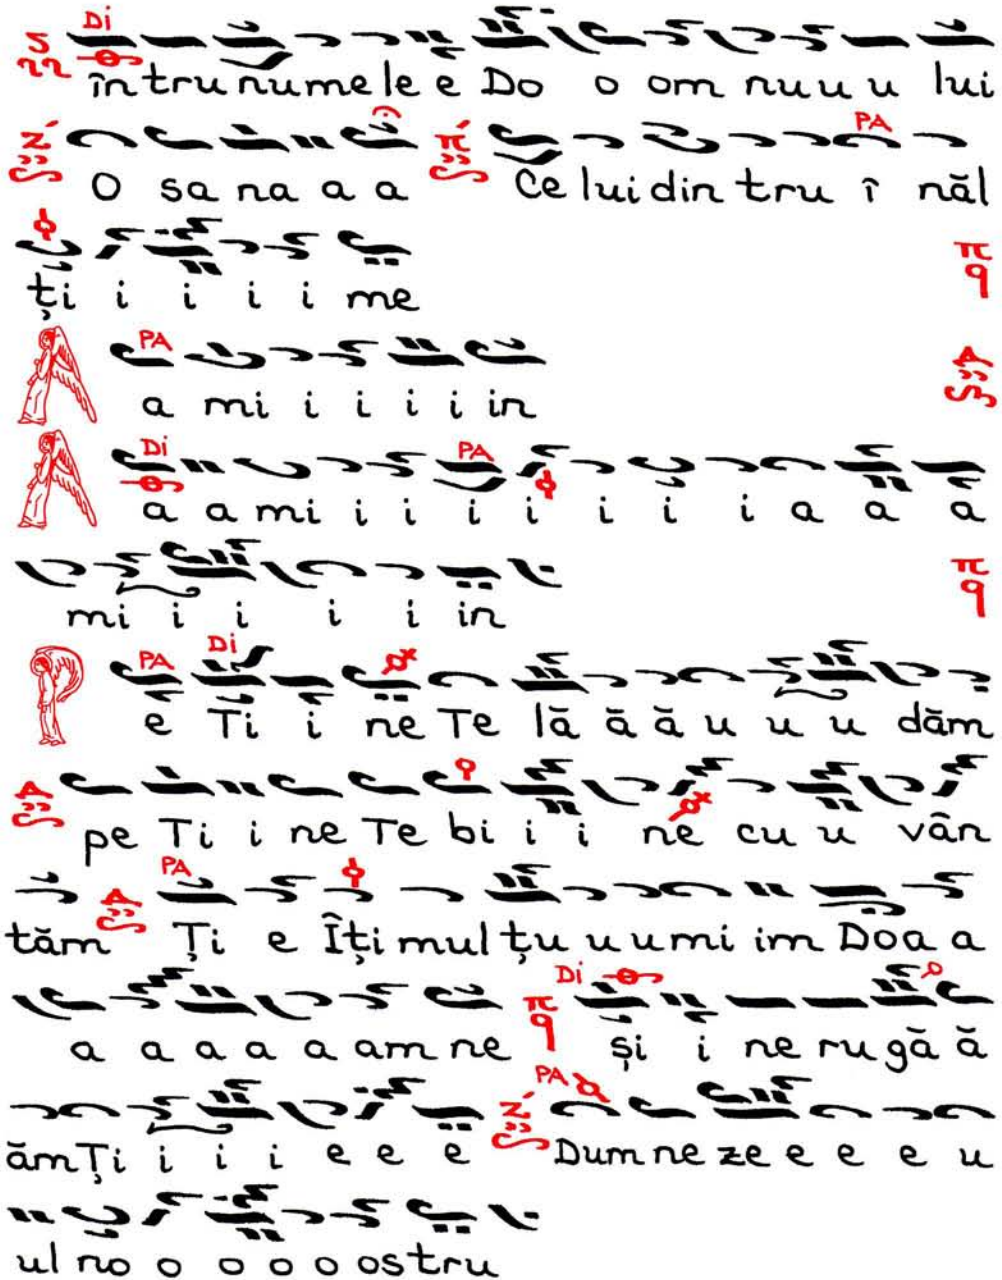 Di
în tru nu me le e Do o om nu u u lui
PA
O sa na a a Ce lui din tru î năl
ți i i i i me
PA
a mi i i i i in
Di PA
a a mi i i i i i i i a a a
mi i i i i in
PA Di
e Ti i ne Te lă ă ă u u u dăm
pe Ti i ne Te bi i i ne cu u vân
PA
tăm Ți e Îți mul țu u u mi im Doa a
Di
a a a a a am ne și i ne ru gă ă
PA
ăm Ți i i i e e e Dum ne ze e e e u
ul no o o o o os tru